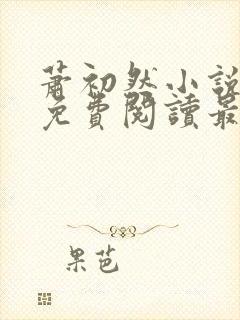 蕭初然小說
免費閱讀最
果芭